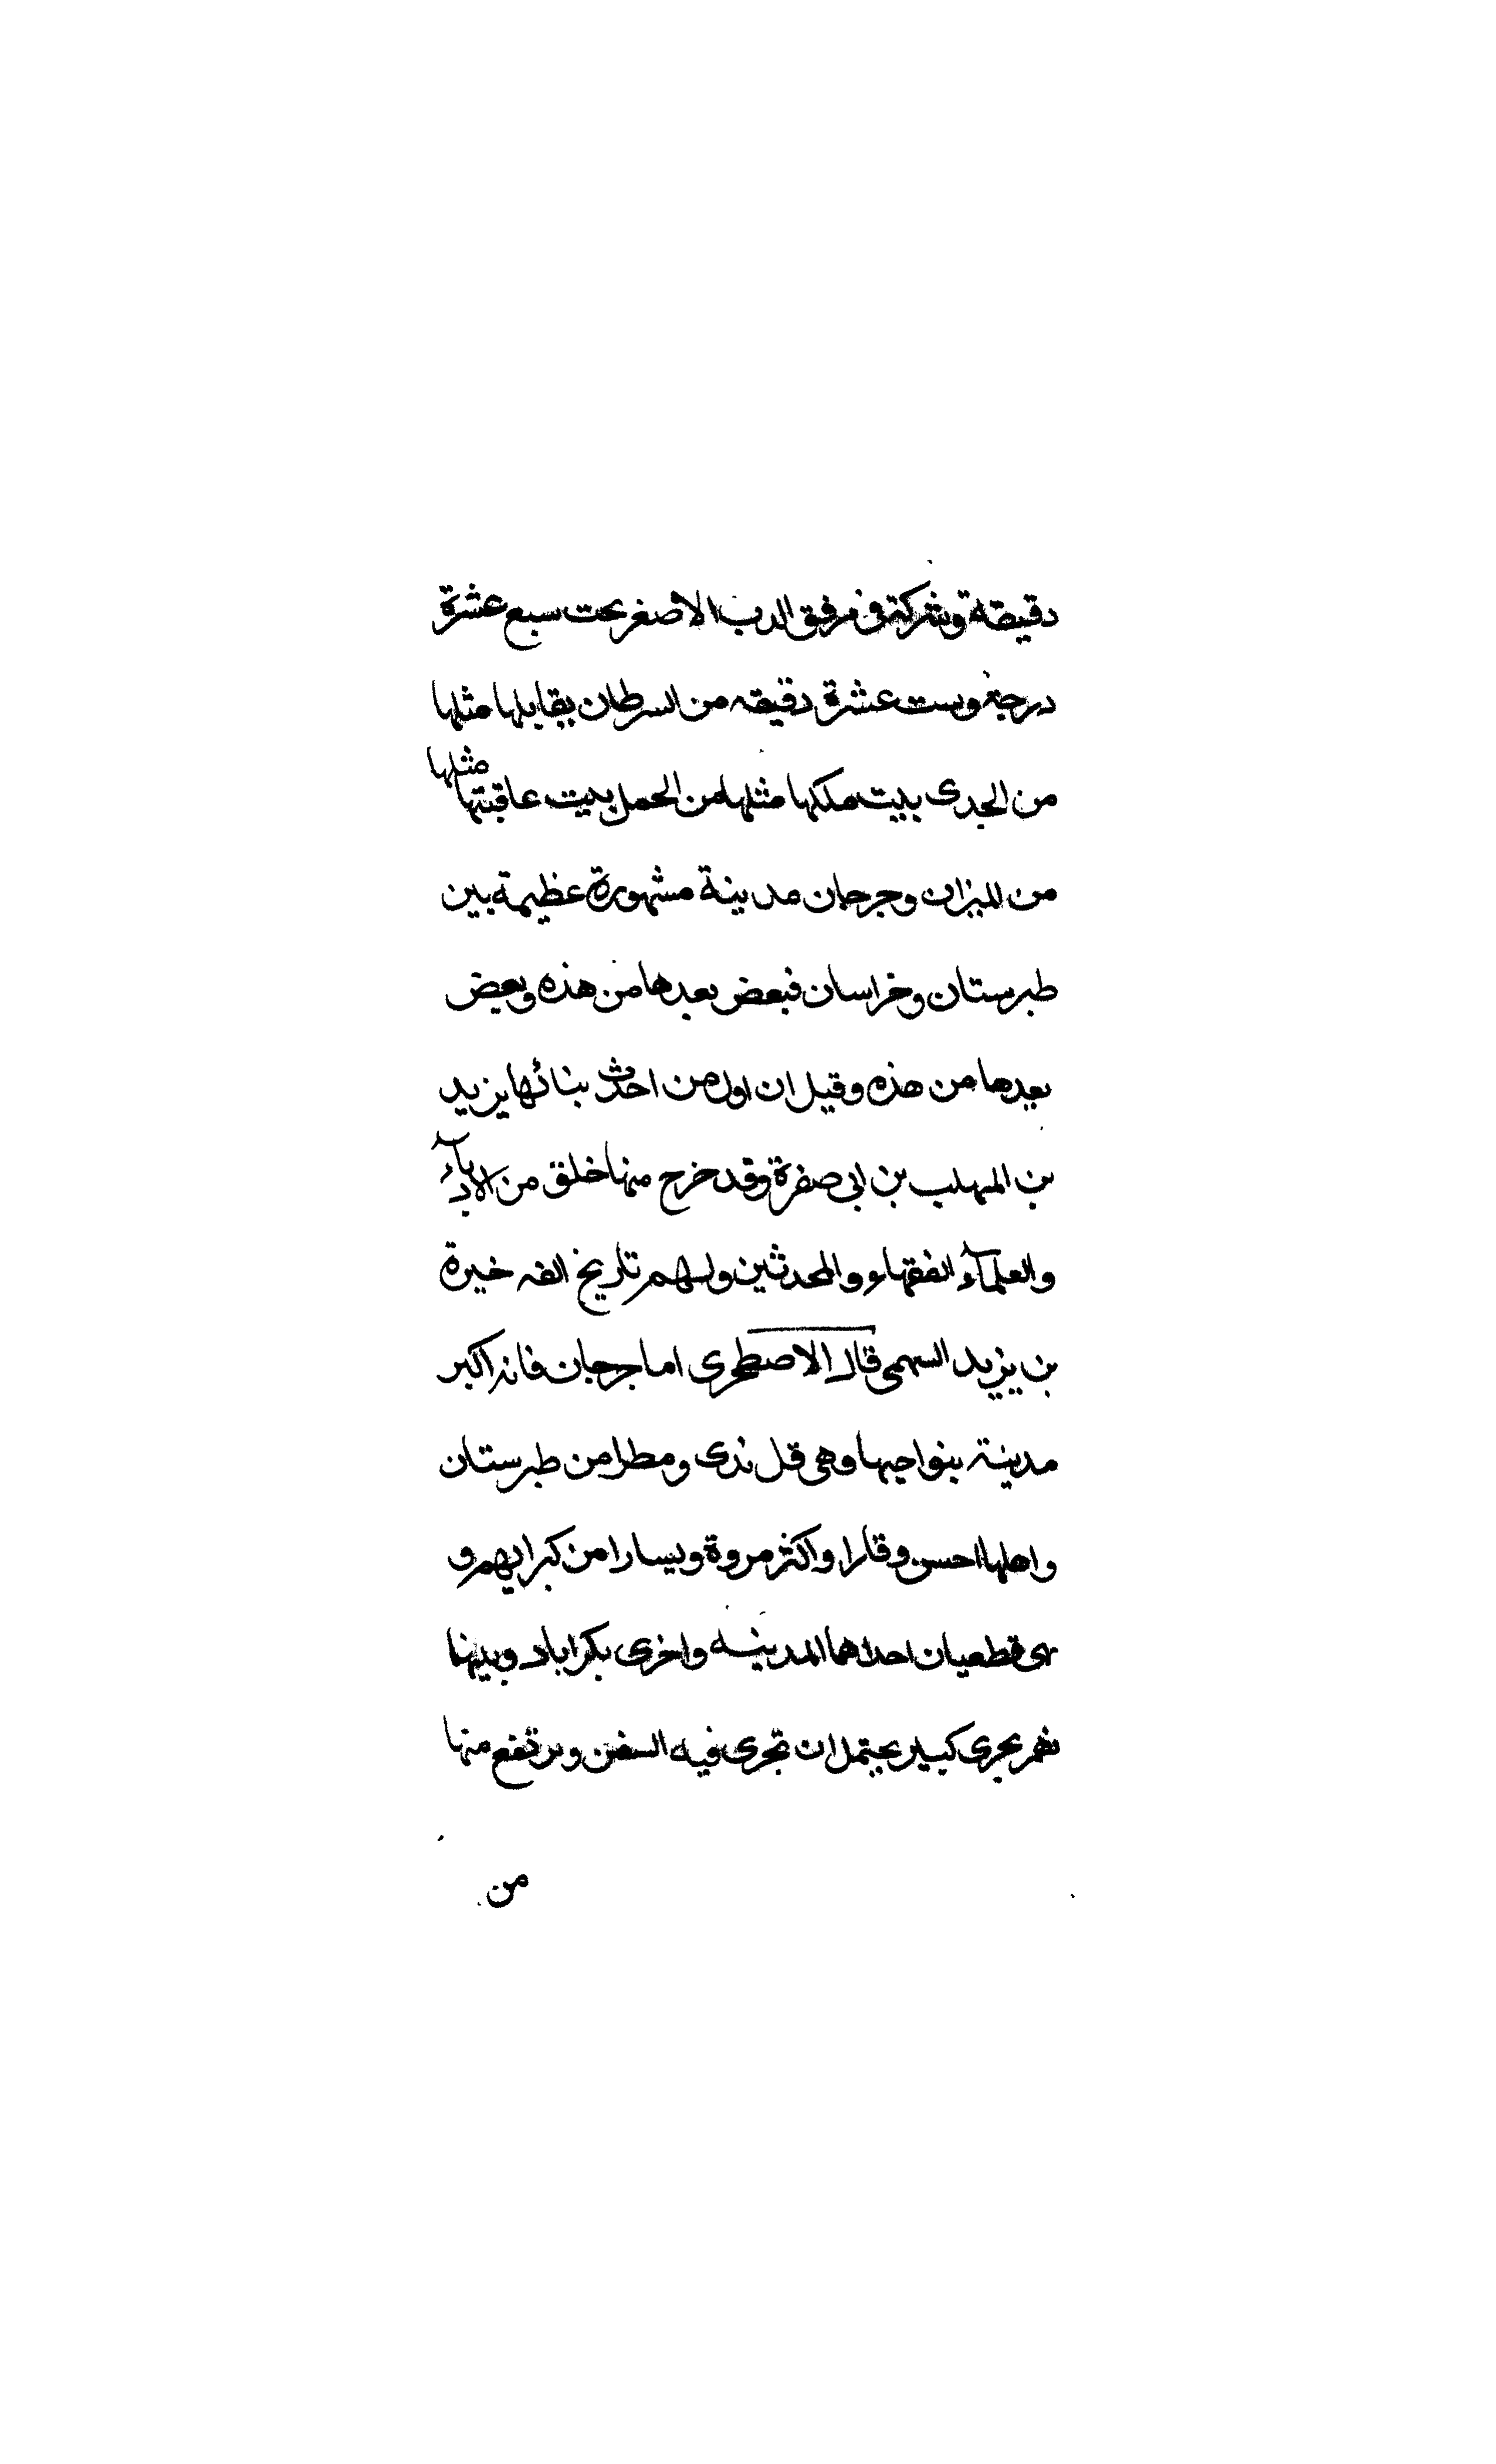 دقيقة وشركة فى مرفق الدب الاصغر تحت سبع عشرة
درجة وست عشرة دقيقه من السرطان يقابلها مثلها
من الجدى بيت ملكها مثلها من الحمل بيت عاقبتها مثلها
من الميزان وجرجان مدينة مشهورة عظيمة بين
طبرستان وخراسان فبعض يعدها من هذه وبعض
يعدها من هذه وقيل ان اول من احدث بنائها يزيد
بن المهلب بن ابى صفرة وقد خرج منها خلق من الادباء
والعلماء الفقهاء والمحدثين ولهم تاريخ الفه خيرة
بن يزيد السهمى قال الاصطخرى اما جرجان فانه اكبر
مدينة بنواحيها وهى قل ندى ومطرا من طبرستان
واهلها احسن وقارا واكثر مروة ويسارا من كبرايهم و
هى قطعيان احداهما المدينه واخرى بكراباد وبينها
نهر يجرى كبير يحتمل ان تجرى فيه السفن ويرتفع منها
من